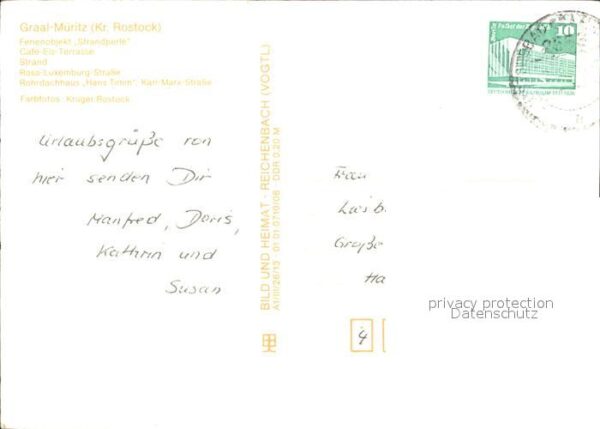 Graal-Müritz (Kr. Rostock)
Ferienobjekt „Strandperle"
Café-Eis-Terrasse
Strand
Rosa-Luxemburg-Straße
Rohrdachhaus „Hans Timm", Karl-Marx-Straße
Farbfotos: Krüger, Rostock
Urlaubsgrüße von
hier senden Dir
Manfred, Doris,
Kathrin und
Susan
BILD UND HEIMAT · REICHENBACH (VOGTL)
A1/III/26/13 01 01 0710/08 DDR 0,20 M
10
Frau
Große
Ha
4
privacy protection
Datenschutz